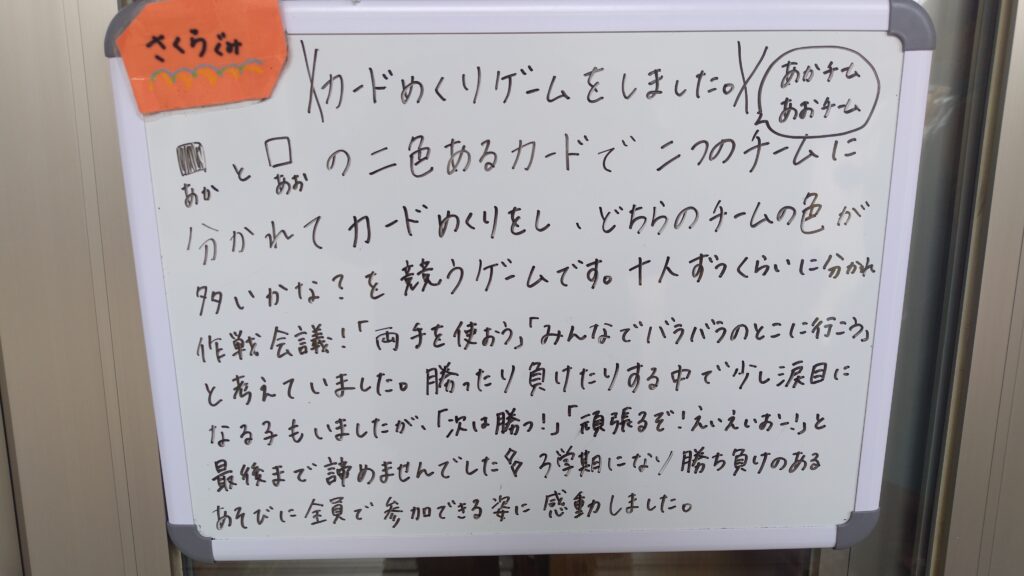 さくらぐみ
\カードめくりゲームをしました。/
あかチーム
あおチーム
と の二色あるカードで 二つのチームに
あか あお
分かれて カードめくりをし、どちらのチームの色が
多いかな?を競うゲームです。十人ずつくらいに分かれ
作戦会議!「両手を使おう」「みんなでバラバラのとこに行こう」
と考えていました。勝ったり負けたりする中で少し涙目に
なる子もいましたが、「次は勝つ!」「頑張るぞ!えいえいおー!」と
最後まで諦めませんでした 学期になり勝ち負けのある
あそびに全員で参加できる姿に感動しました。